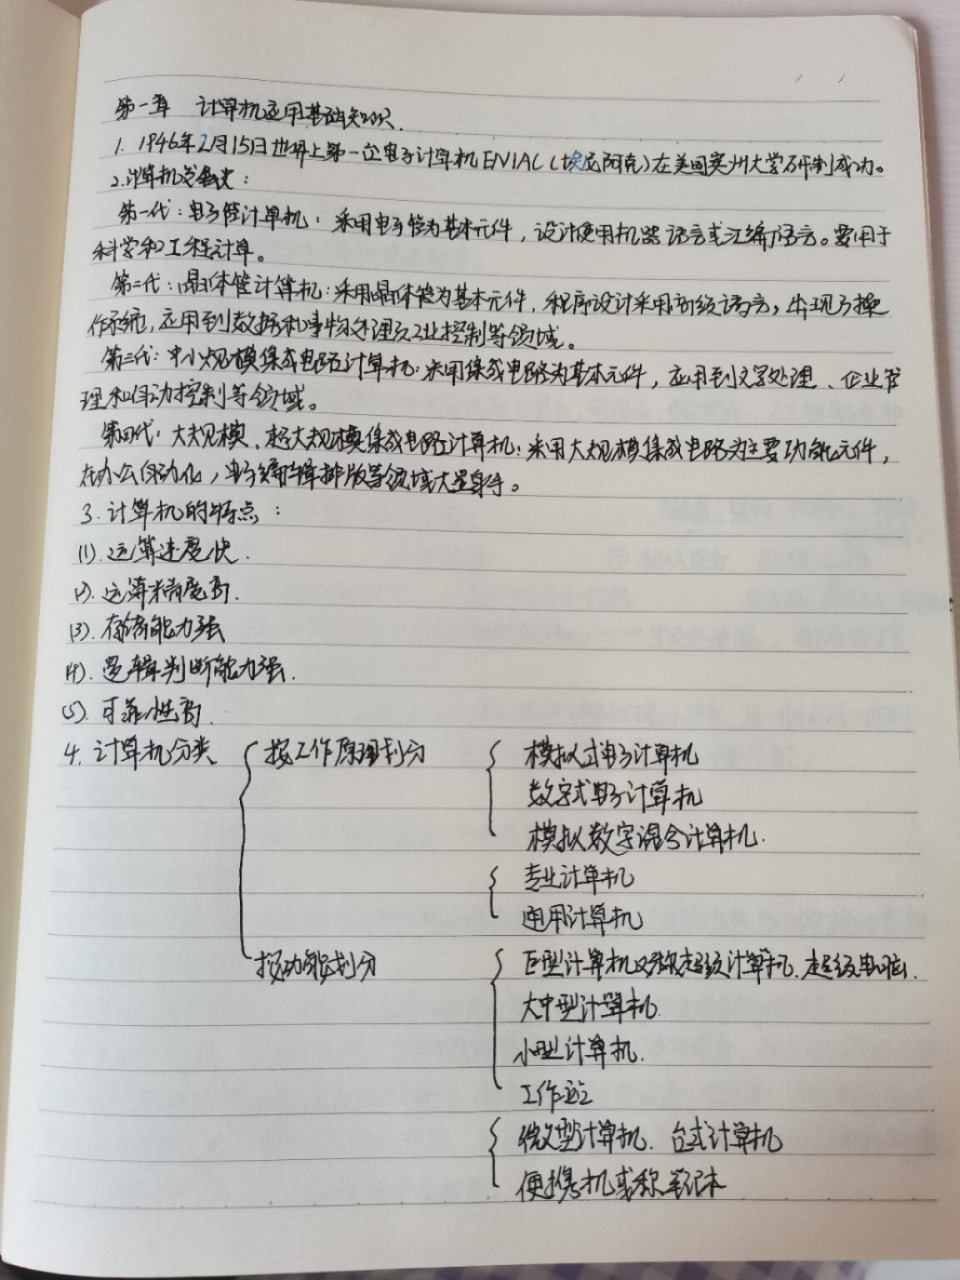 第一章 计算机应用基础知识.
1. 1946年2月15日世界上第一台电子计算机ENIAC(埃尼阿克)在美国宾州大学研制成功。
2.计算机发展史:
第一代:电子管计算机:采用电子管为基本元件,设计使用机器语言或汇编语言。要用于
科学和工程计算。
第二代:晶体管计算机:采用晶体管为基本元件,程序设计采用高级语言,出现了操
作系统,应用到数据和事物处理及工业控制等领域。
第三代:中小规模集成电路计算机:采用集成电路为基本元件,应用到文字处理、企业管
理和自动控制等领域。
第四代:大规模、超大规模集成电路计算机:采用大规模集成电路为主要功能元件,
在办公自动化,电子编辑排版等领域大显身手。
3.计算机的特点:
(1).运算速度快.
(2).运算精度高.
(3).存储能力强
(4).逻辑判断能力强.
(5).可靠性高.
4.计算机分类 按工作原理划分 模拟式电子计算机
数字式电子计算机
模拟数字混合计算机.
专业计算机
通用计算机
按功能划分 巨型计算机又称超级计算机、超级电脑.
大中型计算机.
小型计算机.
工作站
微型计算机、台式计算机
便携机或称笔记本